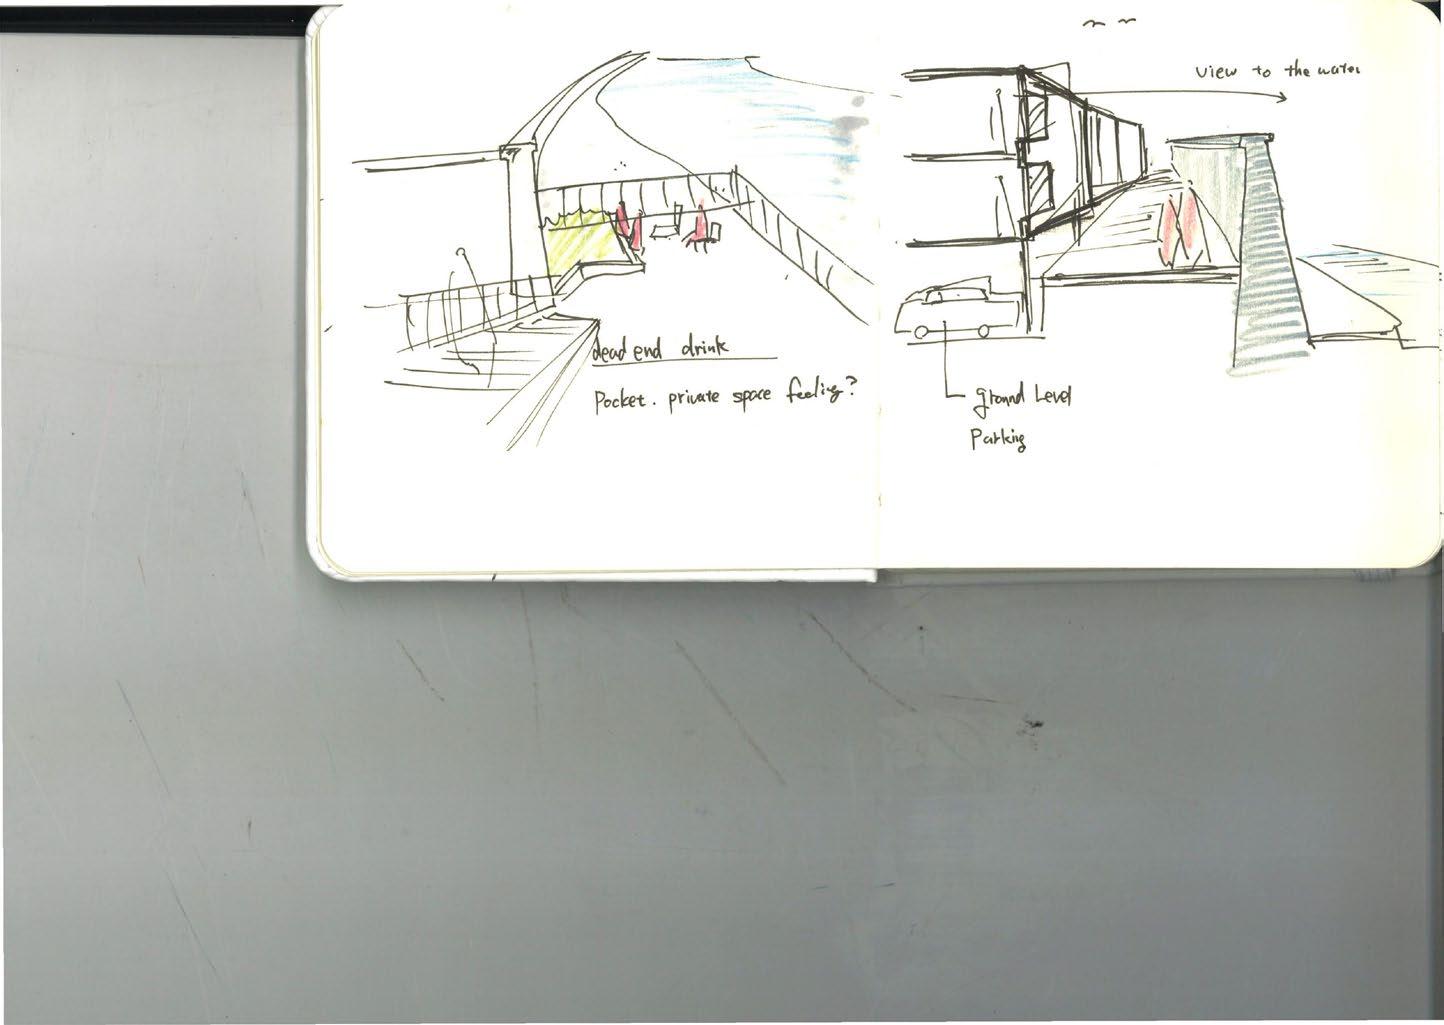 dead end drink
Pocket. private space feeling?
View to the water
ground Level
Parking